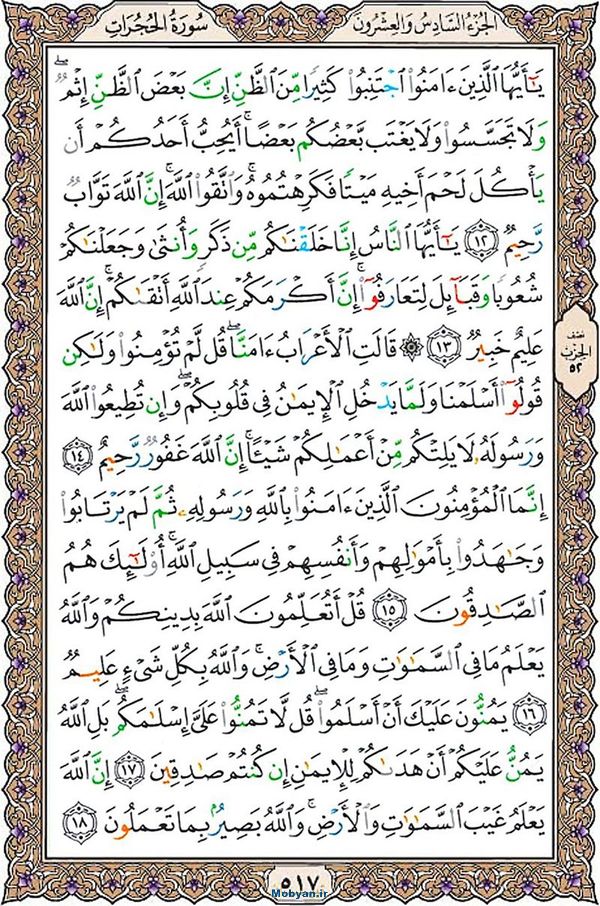 الجزء السادس والعشرون
سورة الحجرات
يَٰٓأَيُّهَا ٱلَّذِينَ ءَامَنُوا۟ ٱجْتَنِبُوا۟ كَثِيرًا مِّنَ ٱلظَّنِّ إِنَّ بَعْضَ ٱلظَّنِّ إِثْمٌ ۖ
وَلَا تَجَسَّسُوا۟ وَلَا يَغْتَب بَّعْضُكُم بَعْضًا ۚ أَيُحِبُّ أَحَدُكُمْ أَن
يَأْكُلَ لَحْمَ أَخِيهِ مَيْتًا فَكَرِهْتُمُوهُ ۚ وَٱتَّقُوا۟ ٱللَّهَ ۚ إِنَّ ٱللَّهَ تَوَّابٌ
رَّحِيمٌ ١٢ يَٰٓأَيُّهَا ٱلنَّاسُ إِنَّا خَلَقْنَٰكُم مِّن ذَكَرٍ وَأُنثَىٰ وَجَعَلْنَٰكُمْ
شُعُوبًا وَقَبَآئِلَ لِتَعَارَفُوٓا۟ ۚ إِنَّ أَكْرَمَكُمْ عِندَ ٱللَّهِ أَتْقَىٰكُمْ ۚ إِنَّ ٱللَّهَ
عَلِيمٌ خَبِيرٌ ١٣ ۞ قَالَتِ ٱلْأَعْرَابُ ءَامَنَّا ۖ قُل لَّمْ تُؤْمِنُوا۟ وَلَٰكِن
نصف
الحزب
٥٢
قُولُوٓا۟ أَسْلَمْنَا وَلَمَّا يَدْخُلِ ٱلْإِيمَٰنُ فِى قُلُوبِكُمْ ۖ وَإِن تُطِيعُوا۟ ٱللَّهَ
وَرَسُولَهُۥ لَا يَلِتْكُم مِّنْ أَعْمَٰلِكُمْ شَيْـًٔا ۚ إِنَّ ٱللَّهَ غَفُورٌ رَّحِيمٌ ١٤
إِنَّمَا ٱلْمُؤْمِنُونَ ٱلَّذِينَ ءَامَنُوا۟ بِٱللَّهِ وَرَسُولِهِۦ ثُمَّ لَمْ يَرْتَابُوا۟
وَجَٰهَدُوا۟ بِأَمْوَٰلِهِمْ وَأَنفُسِهِمْ فِى سَبِيلِ ٱللَّهِ ۚ أُو۟لَٰٓئِكَ هُمُ
ٱلصَّٰدِقُونَ ١٥ قُلْ أَتُعَلِّمُونَ ٱللَّهَ بِدِينِكُمْ وَٱللَّهُ
يَعْلَمُ مَا فِى ٱلسَّمَٰوَٰتِ وَمَا فِى ٱلْأَرْضِ ۚ وَٱللَّهُ بِكُلِّ شَىْءٍ عَلِيمٌ
١٦ يَمُنُّونَ عَلَيْكَ أَنْ أَسْلَمُوا۟ ۖ قُل لَّا تَمُنُّوا۟ عَلَىَّ إِسْلَٰمَكُم ۖ بَلِ ٱللَّهُ
يَمُنُّ عَلَيْكُمْ أَنْ هَدَىٰكُمْ لِلْإِيمَٰنِ إِن كُنتُمْ صَٰدِقِينَ ١٧ إِنَّ ٱللَّهَ
يَعْلَمُ غَيْبَ ٱلسَّمَٰوَٰتِ وَٱلْأَرْضِ ۚ وَٱللَّهُ بَصِيرٌۢ بِمَا تَعْمَلُونَ ١٨
٥١٧
Mobyan.ir